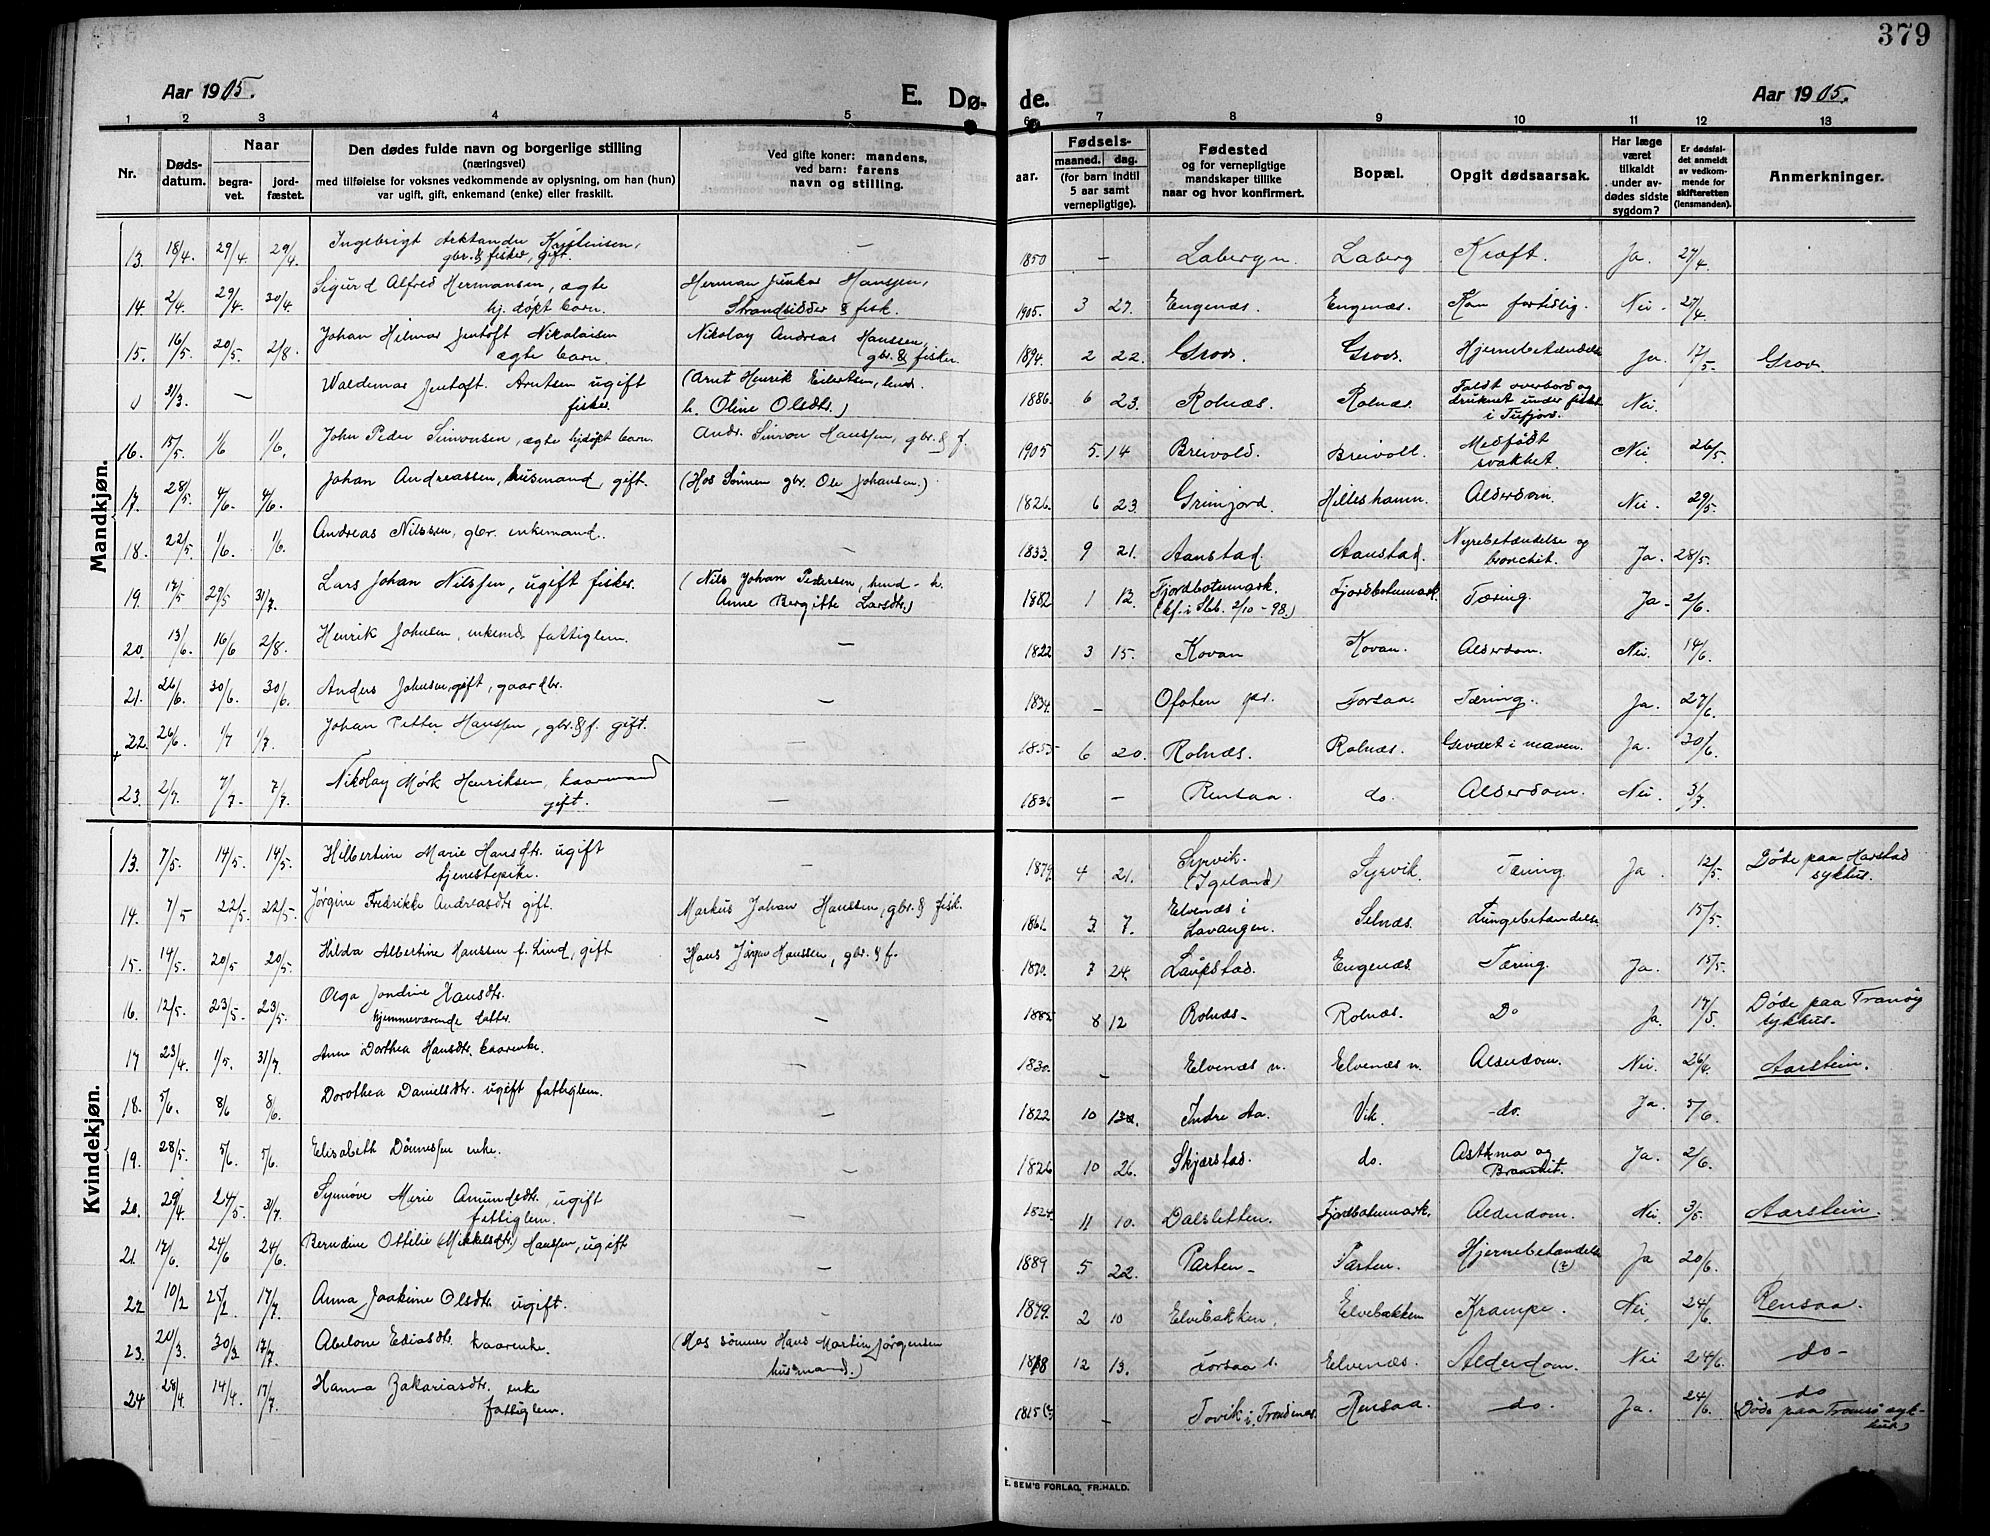 379
Aar 1905.
E. Dø-
de.
Aar 1905.
1 2 3 4 5 6 7 8 9 10 11 12 13
Nr.
Døds-datum.
Naar
begra-vet.
jord-fæstet.
Den dødes fulde navn og borgerlige stilling
(næringsvei)
med tilføielse for voksnes vedkommende av oplysning, om han (hun)
var ugift, gift, enkemand (enke) eller fraskilt.
Ved gifte koner: mandens,
ved barn: farens
navn og stilling.
Fødsels-
aar.
maaned. dag.
(for barn indtil
5 aar samt
vernepligtige).
Fødested
og for vernepligtige
mandskaper tillike
naar og hvor konfirmert.
Bopæl.
Opgit dødsaarsak.
Har læge
været
tilkaldt
under av-
dødes sidste
sygdom?
Er dødsfal-
det anmeldt
av vedkom-
mende for
skifteretten
(lensmanden).
Anmerkninger.
Mandkjøn.
13. 18/4. 29/4. 29/4. Ingebrigt Arktander Kristensen, gbr. & fisker, gift. — 1850 — Laberg n. Laberg Kræft. Ja. 27/4.
14. 2/4. 29/4. 30/4. Sigurd Alfred Hermansen, ægte hj. døpt barn. Herman Junkar Hanssen, Strandsidder & fisk. 1905. 3 27. Engenæs. Engenæs. Kom fortidlig. Nei. 27/4.
15. 16/5. 20/5. 2/8. Johan Hilmar Jentoft Nikolaisen ægte barn. Nikolay Andreas Hanssen, gbr. & fisker 1894. 2 22. Grov. Grov. Hjernebetændelse Ja. 17/5. Grov.
31/3. — Waldemar Jentoft Arntsen ugift fisker. (Arnt Henrik Eilertsen, hmd. h. Oline Olsdtr.) 1886. 6 23. Rolnæs. Rolnæs. Faldt overbord og druknet under fiske i Tufjord. Nei.
16. 15/5. 1/6 1/6. John Peder Simonsen, ægte hjdøpt barn. Andr. Simon Hanssen, gbr. & f. 1905 5. 14 Breivold. Breivoll. Medfødt svakhet. Nei. 26/5.
17. 28/5. 4/6. 4/6. Johan Andreassen, husmand, gift. (Hos Sønnen gbr. Ole Johansen.) 1826. 6 23. Grimjord. Hilleshamn. Alderdom. Nei. 29/5.
18. 22/5. 1/6. 1/6. Andreas Nilssen, gbr. enkemand. — 1833. 9 21. Aanstad. Aanstad. Nyrebetændelse og bronchit. Ja. 28/5.
19. 17/5 29/5 31/7. Lars Johan Nilssen, ugift fisker. (Nils Johan Pedersen, hmd - h. Anne Bergitte Larsdtr.) 1882 1 12. Fjordbotenmark. (kf. i Ibb. 2/10 - 98.) Fjordbotnmark. Tæring. Ja. 2/6.
20. 13/6. 16/6 2/8. Henrik Johnsen, enkemd. fattiglem. — 1822 3 15. Kovan Kovan. Alderdom. Nei. 14/6.
21. 26/6 30/6. 30/6. Anders Johnsen, gift, gaardbr. — 1834. — Ofoten pr. Forsaa. Tæring. Ja. 27/6.
22. 26/6. 1/7 1/7. Johan Petter Hanssen, gbr. & f. gift. 1855 6 20. Rolnæs. Rolnæs. Gevæxt i maven. Ja. 30/6
23. 2/7. 7/7. 7/7. Nikolay Mørk Henriksen, kaarmand gift. — 1836 — Rensaa. do. Alderdom. Nei. 3/7
Kvindekjøn.
13. 7/5. 14/5. 14/5. Hilbertine Marie Hansdtr. ugift tjenestepike. — 1879. 4 21. Syrvik. (Igeland) Syrvik. Tæring Ja. 12/5. Døde paa Harstad sykhus.
14. 7/5 22/5. 22/5. Jørgine Fredrikke Andreasdtr gift. Markus Johan Hanssen, gbr. & fisk. 1861. 3. 7. Elvenæs i Lavangen. Selnæs. Lungebetændelse. 15/5.
15. 14/5. 20/5 20/5. Hilda Albertine Hanssen f. Lind, gift Hans Jørgen Hanssen, gbr. & f. 1870. 7 24. Laupstad. Engenæs. Tæring. Ja. 15/5.
16. 12/5. 23/5. 23/5. Olga Jondine Hansdtr. hjemmeværende datter. — 1885 8 12 Rolnæs- Rolnæs. Do Ja. 17/5. Døde paa Tranøy sykhus.
17 23/4. 1/5. 31/7. Anne Dorthea Hansdtr. kaarenke. 1830. — Elvenæs n. Elvenæs n. Alderdom. Nei. 26/4. Aarstein.
18. 5/6. 8/6 8/6. Dorothea Danielsdtr. ugift fattiglem. — 1822 10 13. Indre Aa. Vik. -do. Ja. 5/6.
19. 28/5. 5/6. 5/6. Elisabeth Dønnessen enke. — 1826 10 26. Skjærstad. do. Asthma og Bronchit. Ja. 2/6.
20. 29/4. 24/5. 31/7. Synnøve Marie Amundsdtr. ugift fattiglem. — 1824. 11 10. Dalsletten. Fjordbotnmark. Alderdom. Nei. 3/5. Aarstein.
21. 17/6. 24/6 24/6. Berndine Ottilie (Mikkelsdtr.) Hanssen, ugift — 1889 5 22. Parten- Parten. Hjernebetændelse (?) Ja 20/6.
22 10/2 25/2 17/7. Anna Joakime Olsdtr. ugift. — 1879. 2 10 Elvebakken, Elvebakken Krampe. Nei, 24/6. Rensaa.
23. 20/3. 30/3 17/7. Abelone Esiasdtr. kaarenke. (Hos sønnen Hans Martin Jørgensen husmand.) 1818 12 13. Forsaa s. Elvenæs. Alderdom. Nei 24/6. -do-
24 28/4. 14/4. 17/7. Hanna Zakariasdtr. enke fattiglem. 1815(?) — Tovik i Trondenæs. Rensaa -do. Ja. 24/6. do (Døde paa Tromsø syk-hus.)
E. SEM'S FORLAG, FR.HALD.